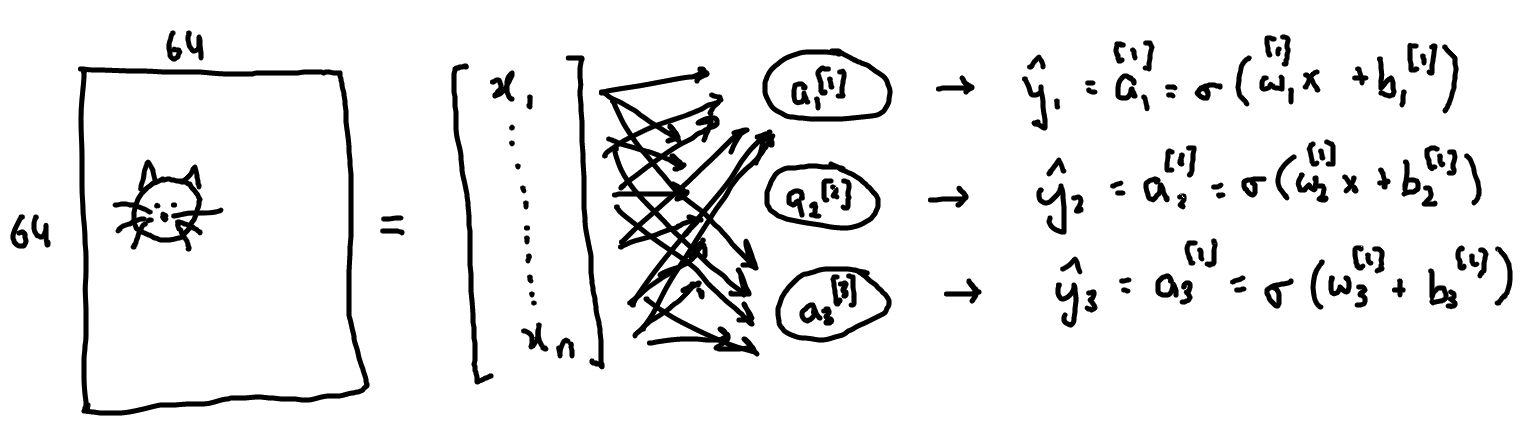 64
64
=
x₁
xₙ
a₁^[1] → ŷ₁ = a₁^[1] = σ(ω₁^[1] x + b₁^[1])
a₂^[2] → ŷ₂ = a₂^[1] = σ(ω₂^[1] x + b₂^[1])
a₃^[3] → ŷ₃ = a₃^[1] = σ(ω₃^[1] + b₃^[1])